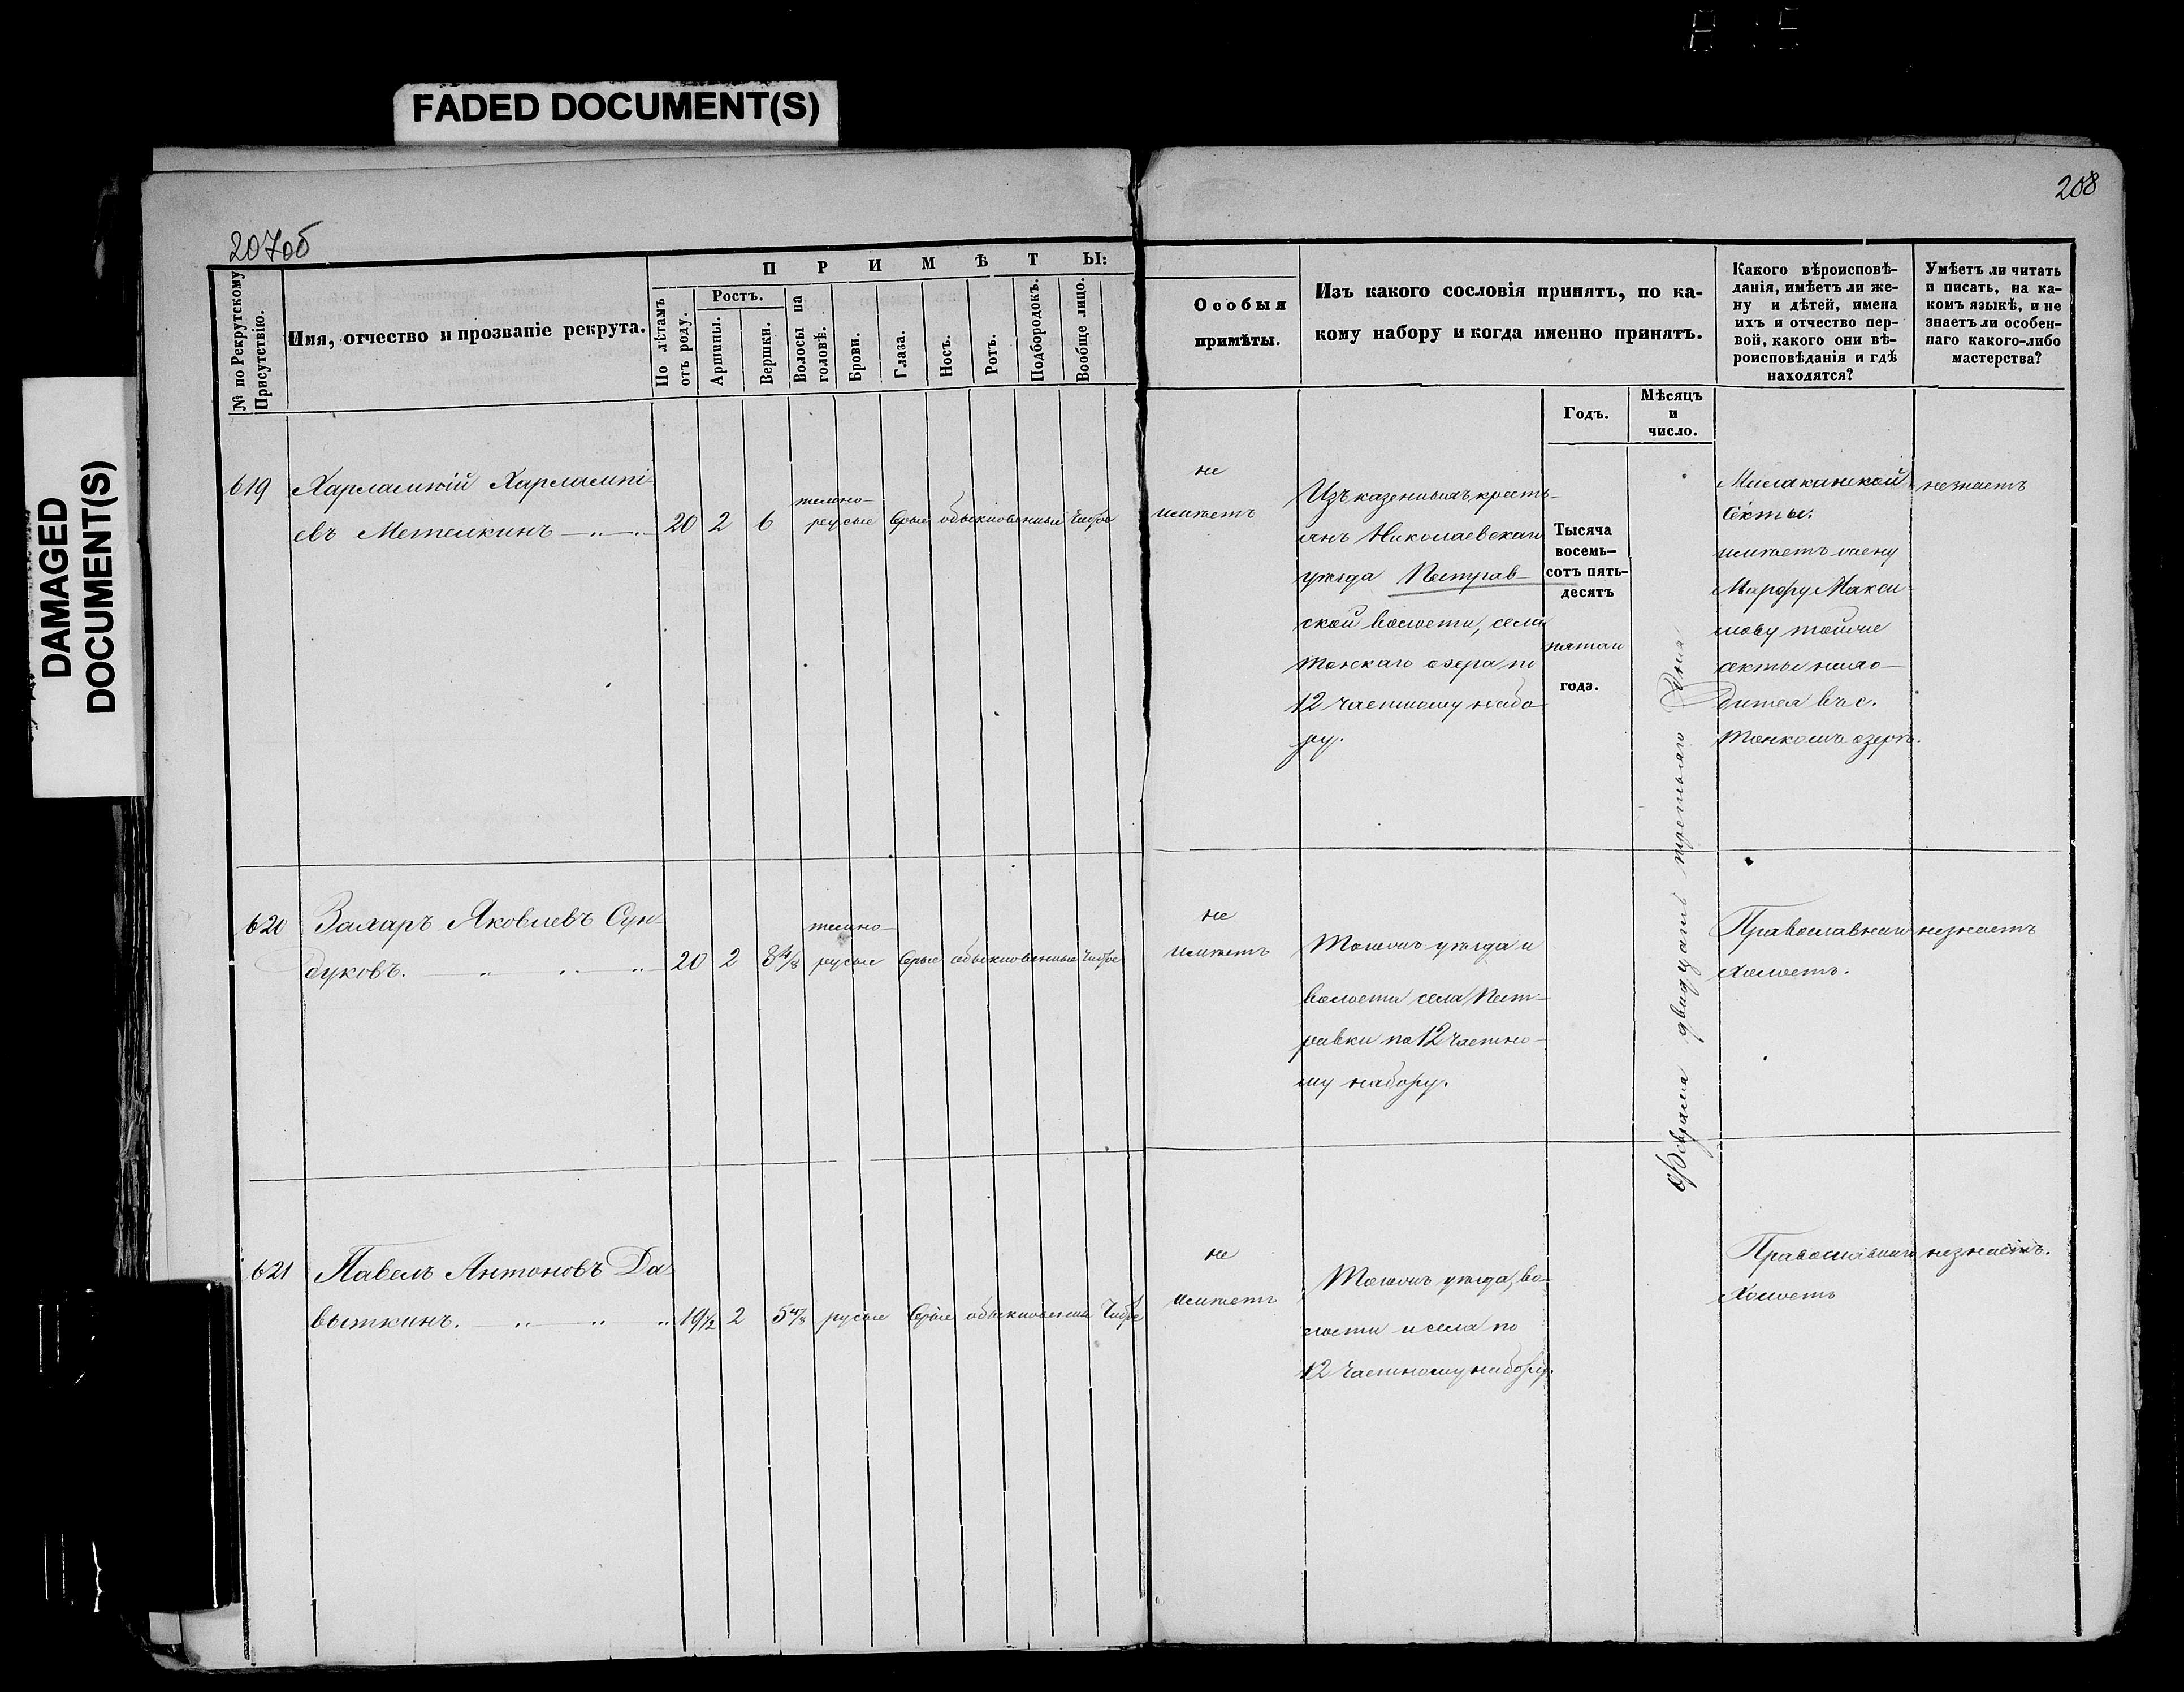 FADED DOCUMENT(S)
DAMAGED
DOCUMENT(S)
207об
208
№ по Рекрутскому
Присутствію.
Имя, отчество и прозваніе рекрута.
ПРИМѢТЫ:
По лѣтамъ
отъ роду.
Ростъ.
Аршины.
Вершки.
Волосы на
головѣ.
Брови.
Глаза.
Носъ.
Ротъ.
Подбородокъ.
Вообще лицо.
Особыя
примѣты.
Изъ какого сословія принятъ, по ка-
кому набору и когда именно принятъ.
Годъ.
Мѣсяцъ
и
число.
Какого вѣроисповѣ-
данія, имѣетъ ли же-
ну и дѣтей, имена
ихъ и отчество пер-
вой, какого они вѣ-
роисповѣданія и гдѣ
находятся?
Умѣетъ ли читать
и писать, на ка-
комъ языкѣ, и не
знаетъ ли особен-
наго какого-либо
мастерства?
619
Харлампій Харлампі-
евъ Метелкинъ
20 2 6
темно-
русые сѣрые обыкновенный чистое
не
имѣетъ
Изъ казенныхъ кресть-
янъ Николаевскаго
уѣзда Пестрав-
ской волости, села
Тонкаго озера по
12 частному набо
ру.
Тысяча
восемь-
сотъ пять-
десятъ
пятаго
года.
Февраля двадцать третьяго дня
Малаканской
секты.
имѣетъ жену
Марфу Макси
мову тойже
секты нахо-
дится въ с.
Тонкомъ озерѣ.
незнаетъ
620
Захаръ Яковлевъ Сун-
дуковъ.
20 2 3 4/8
темно-
русые сѣрые обыкновенные чистое
не
имѣетъ
Тогожъ уѣзда и
волости села Пест-
равки по 12 частно-
му набору.
Православнаго
Холостъ.
незнаетъ
621
Павелъ Антоновъ Да-
выткинъ.
19 1/2 2 5 4/8 русые сѣрые обыкновенный чистое
не
имѣетъ
Тогожъ уѣзда, во-
лости и села по
12 частному набору.
Православнаго
Холостъ
незнаетъ.